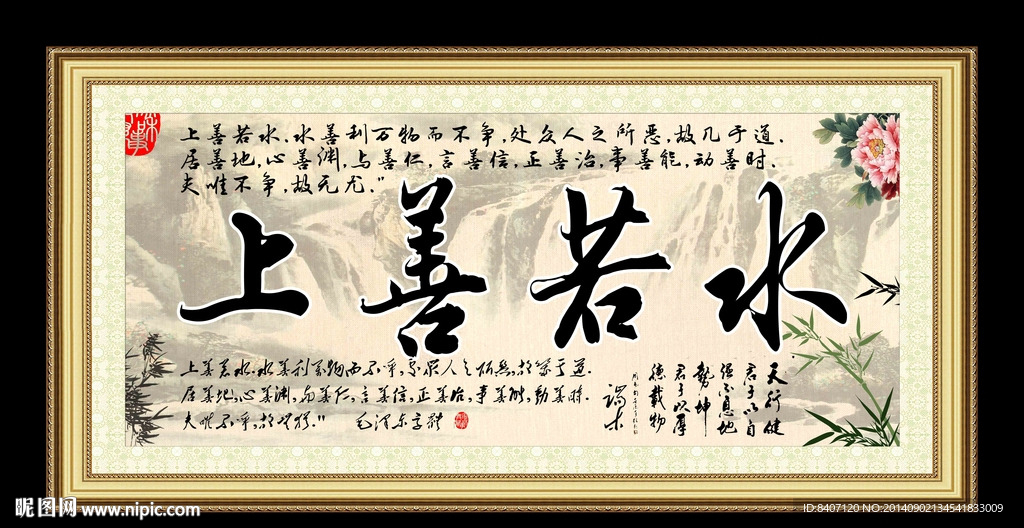 上善若水.水善利万物而不争,处众人之所恶,故几于道.
居善地,心善渊,与善仁,言善信,正善治,事善能,动善时.
夫唯不争,故无尤."
上善若水
上善若水.水善利万物而不争,处众人之所恶,故几于道.
居善地,心善渊,与善仁,言善信,正善治,事善能,动善时.
夫唯不争,故无尤." 毛泽东字体
天行健
君子以自
强不息地
势坤
君子以厚
德载物
昵图网 www.nipic.com
ID:8407120 NO:20140902134541833009